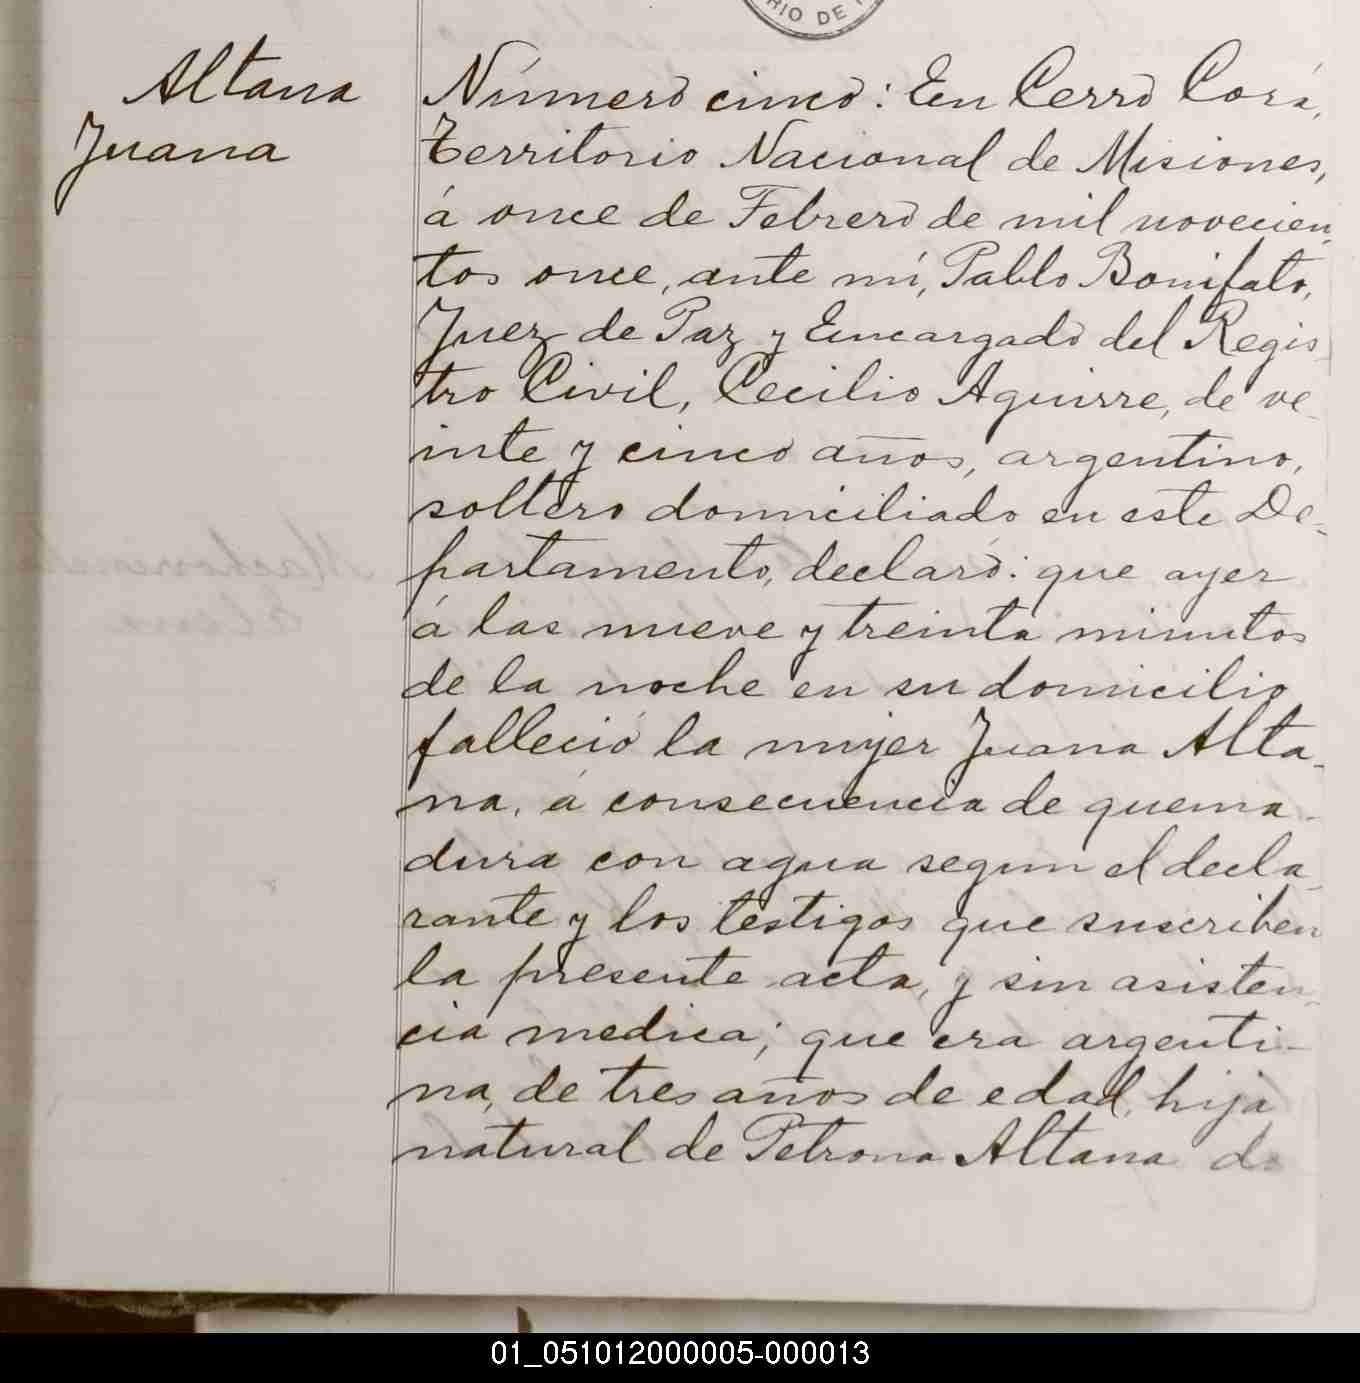 RIO DE
Altana
Juana
Número cinco: En Cerro Corá,
Territorio Nacional de Misiones,
á once de Febrero de mil novecien
tos once, ante mí, Pablo Bonifato,
Juez de Paz y Encargado del Regis
tro Civil, Cecilio Aguirre, de ve
inte y cinco años, argentino,
soltero domiciliado en este De-
partamento, declaró: que ayer
á las nueve y treinta minutos
de la noche en su domicilio
falleció la mujer Juana Alta-
na, á consecuencia de quema-
dura con agua segun el decla-
rante y los testigos que suscriben
la presente acta, y sin asisten-
cia medica; que era argenti-
na, de tres años de edad, hija
natural de Petrona Altana de
01_051012000005-000013